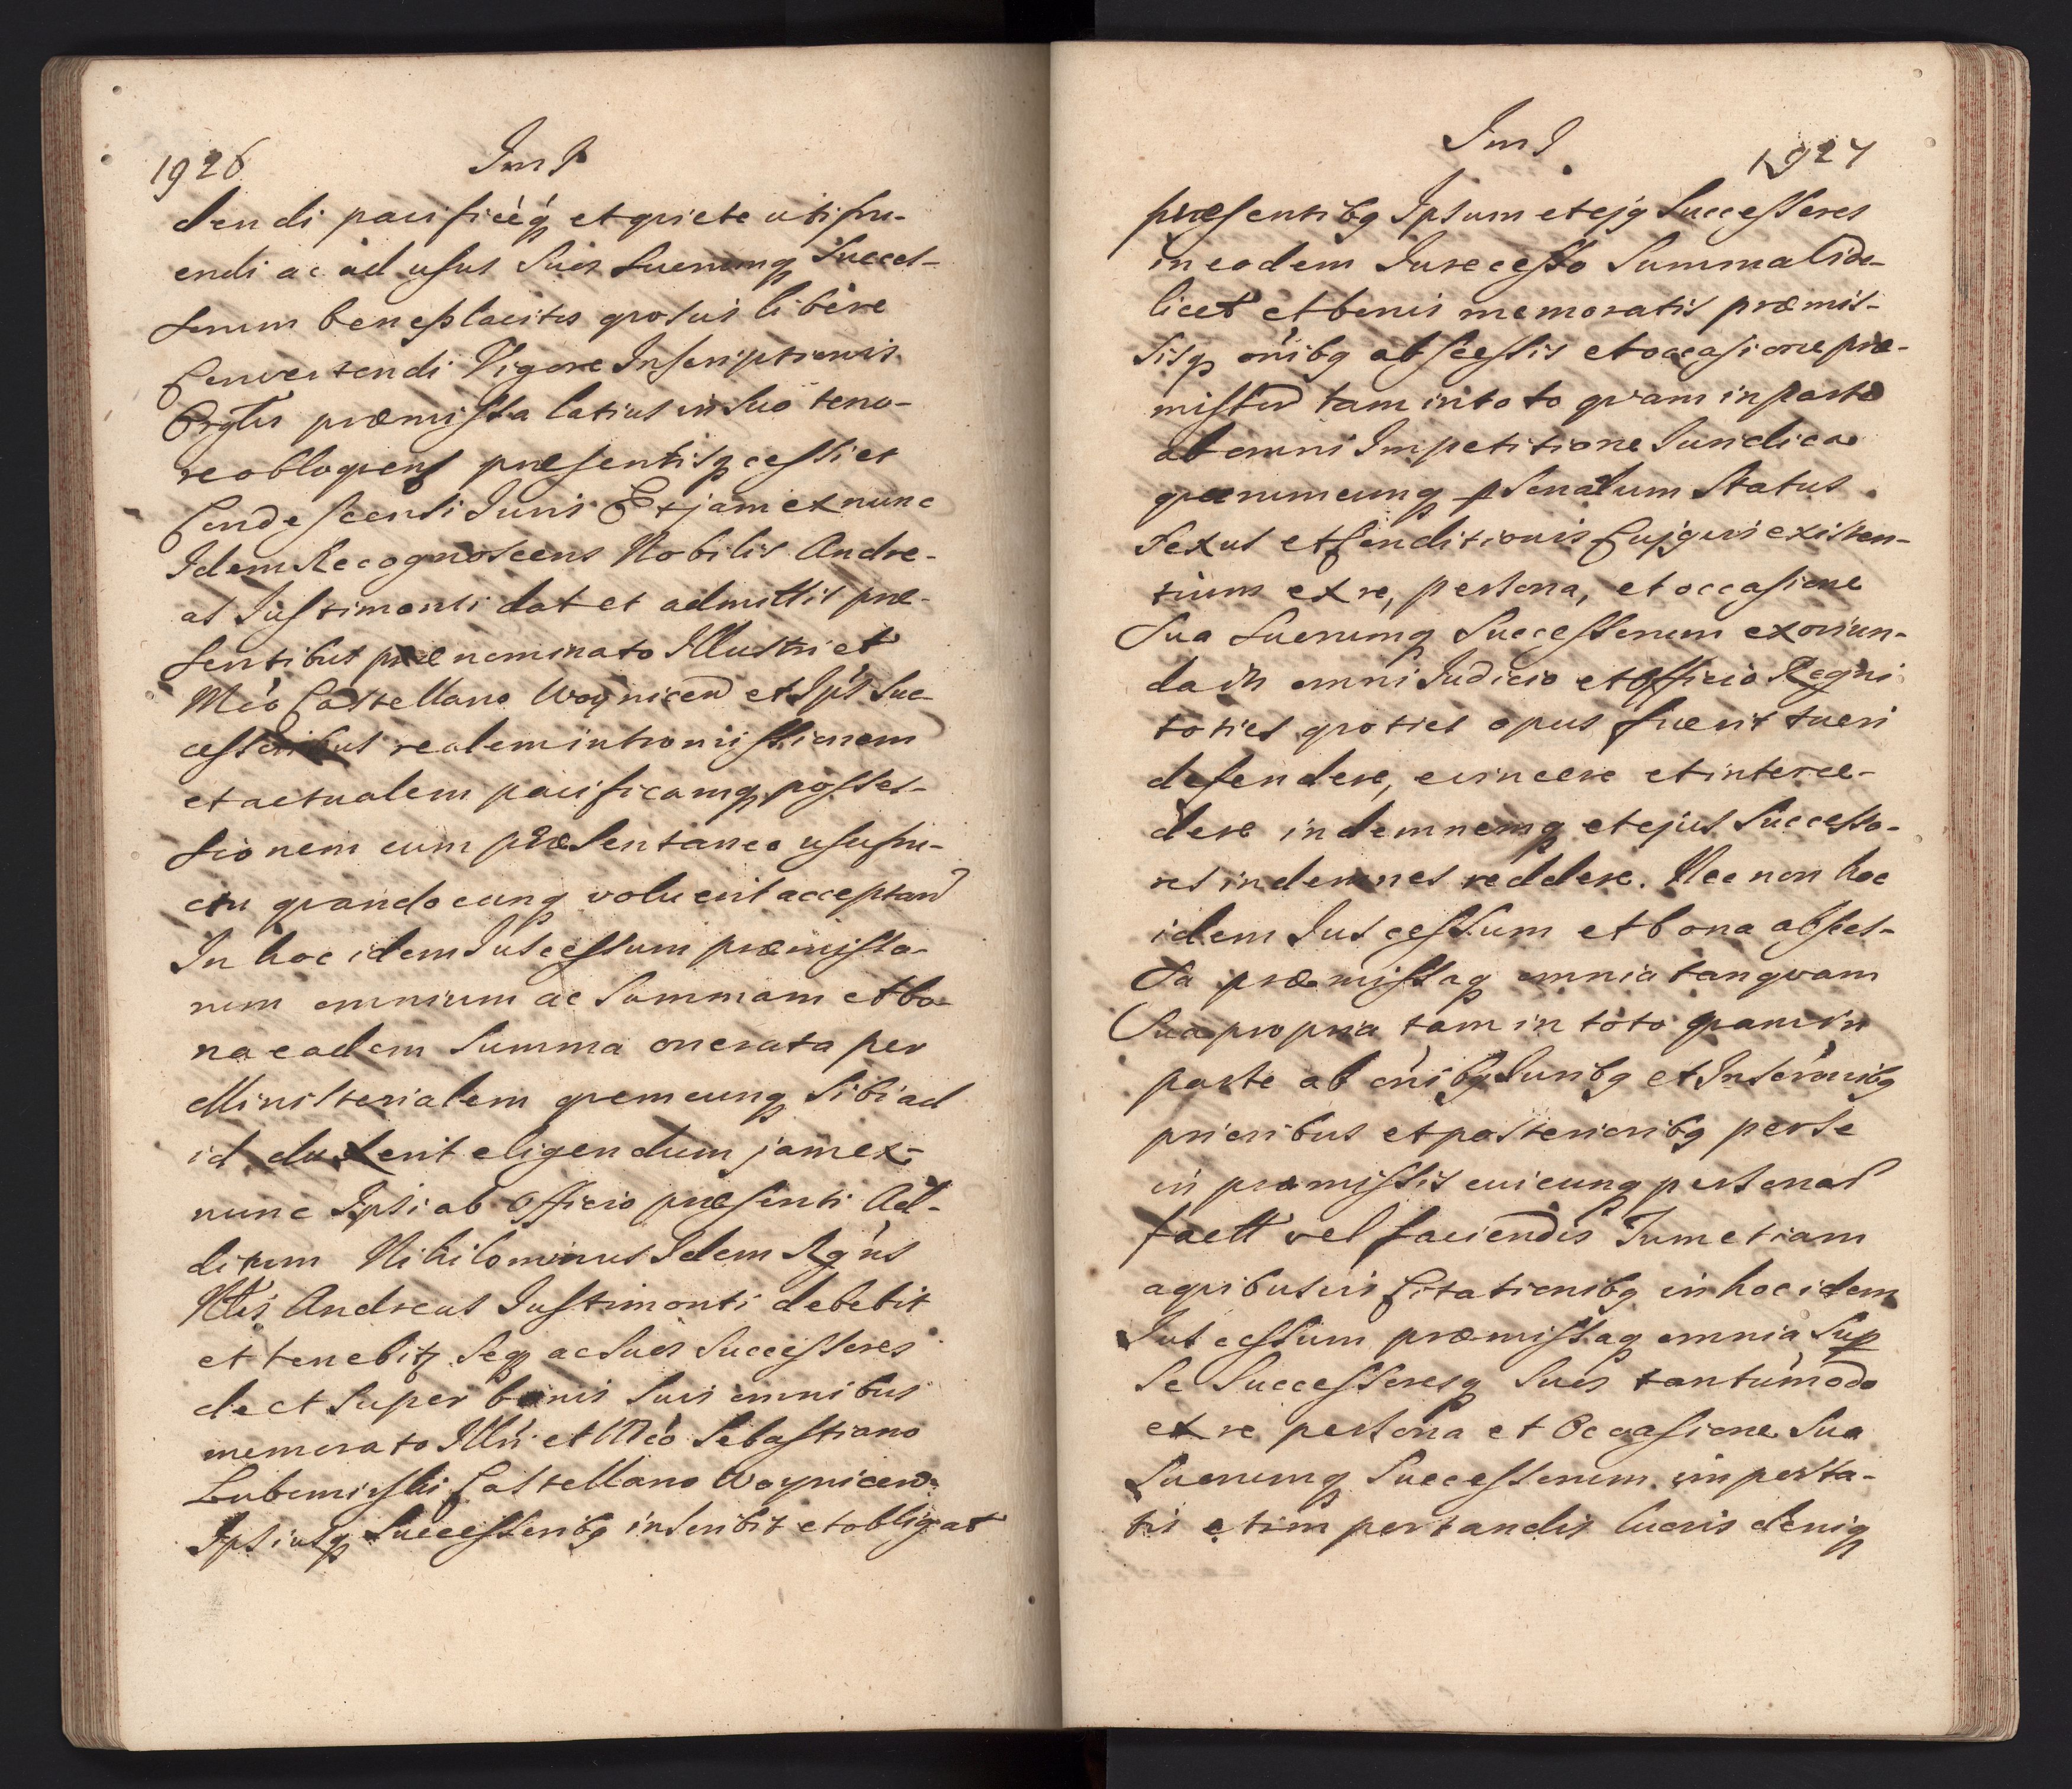 1926
Ins
dendi pacificèq3 et qviete utifru-
endi ac ad usus Suos Suorumq3 Succes-
sorum beneplacitos qvosvis libere
Convertendi Vigore Inscriptionis
præmissa latius in Suo teno-
re obloqvens præsentisq3 cessi et
Condescensi Juris Et jam ex nunc
Idem Recognoscens Nobilis Andre-
as Justimonti dat et admittit præ-
sentibus prænominato Illustri et
Mco Castellano Woynicen et Ipś Suc
cessoribus realem intromissionem
et actualem pacificamq3 posses-
sionem cum præsentaneo usufru-
ctu qvandocunq3 voluerit acceptand
In hoc idem Jus cessum præmisso-
rum omnium ac Summam et bo-
na eadem Summa onerata per
Ministerialem qvemcunq3 Sibi ad
id duxerit eligendum jam ex-
nunc Ipsi ab Officio præsenti Ad-
ditum Nihilominus Idem Rgńs
Nblis Andreas Justimonti debebit
et tenebit3 Seq3 ac Suos Successores
de et Super bonis Suis omnibus
memorato Illri et Mco Sebastiano
Lubomirski Castellano Woynicen:
Ipsiusq3 Successorib9 inscribit et obligat
Ins
1927
præsentib9 Ipsum et ej9 Successores
in eodem Jure cesso Summa vide-
licet et bonis memoratis præmis-
sisq3 ońib9 abscessis et occasione præ-
missor tam in toto qvam in parte
ab omni Impetitione Juridica
qvorumcunq3 psonarum Status
Sexus et Conditionis Cuj9vis existen-
tium ex re, persona, et occasione
Sua Suorumq3 Successorum exoriun-
da in omni Judicio et Officio Regni
toties qvoties opus fuerit tueri
defendere, evincere et interce-
dere indemnemq3 et ejus Successo-
res indemnes reddere. Nec non hoc
idem Jus cessum et bona absces-
sa præmissaq3 omnia tanqvam
Sua propria tam in toto qvam in
parte ab ońib9 Jurib9 et Inscrónib9
prioribus et posteriorib9 per se
in præmissis cuicunq3 personar
factt vel faciendis Tum etiam
a qvibusvis Citationib9 in hoc idem
Jus cessum præmissaq3 omnia Sup
Se Successoresq3 Suos tantumodo
ex re persona et Occasione Sua
Suorumq3 Successorum importa-
tis et importandis lucris deniq3